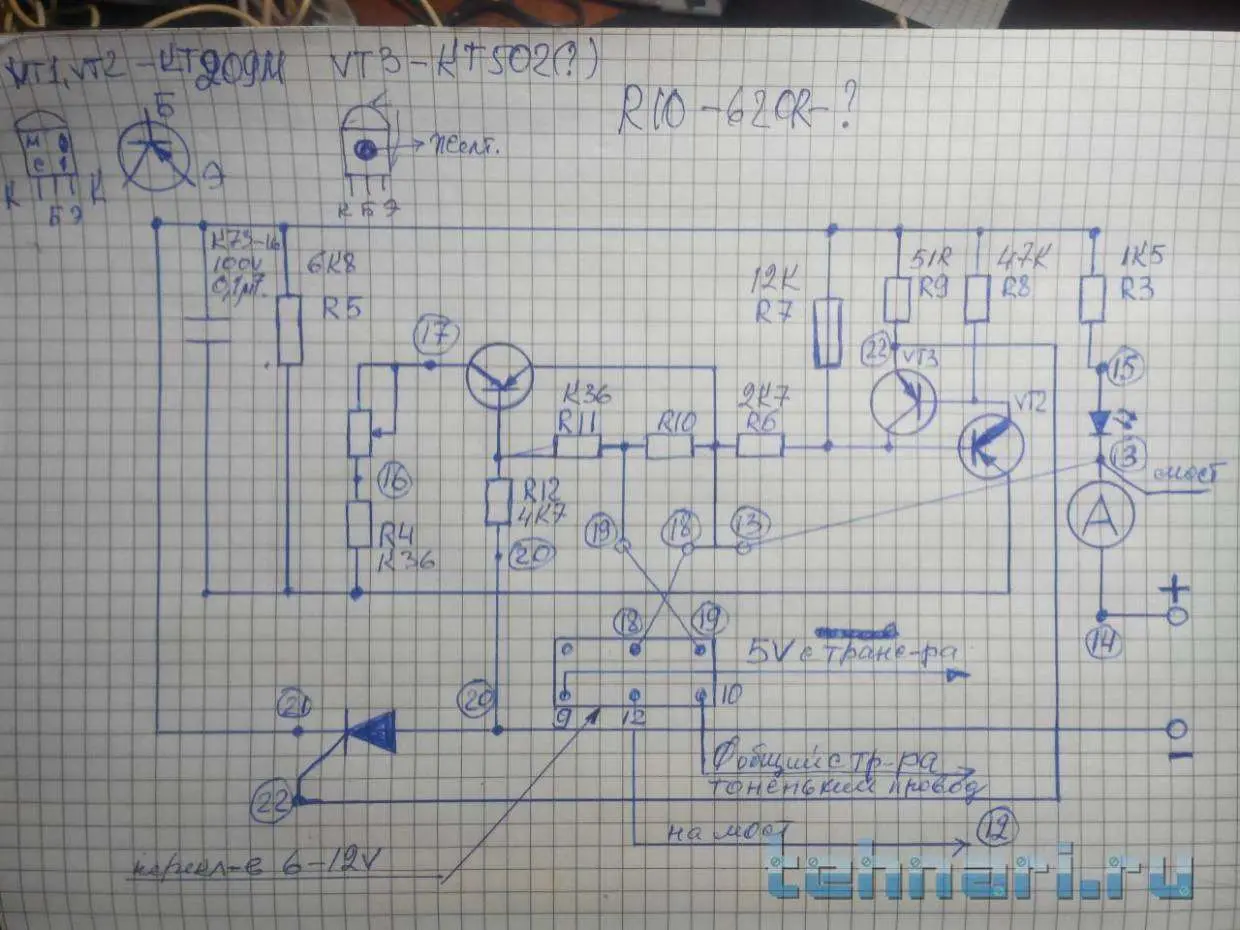 VT1, VT2 - КТ209М VT3 - КТ502(?)
R10 - 620R - ?
Б
М
С 1
→ желт.
К
К
Э
Б Э
К Б Э
К73-16
100V
0,1мf.
6К8
R5
51R
R9
47К
R8
1К5
R3
12К
R7
17
22
VT3
15
К36
R11
R10
2К7
R6
VT2
13
мост
16
R12
4К7
А
R4
К36
20
19
18
13
+
18
19
14
5V с транс-ра
21
20
9
12
10
общий с тр-ра
тоненький провод
−
22
на мост
12
перекл-в 6-12V
tehnari.ru